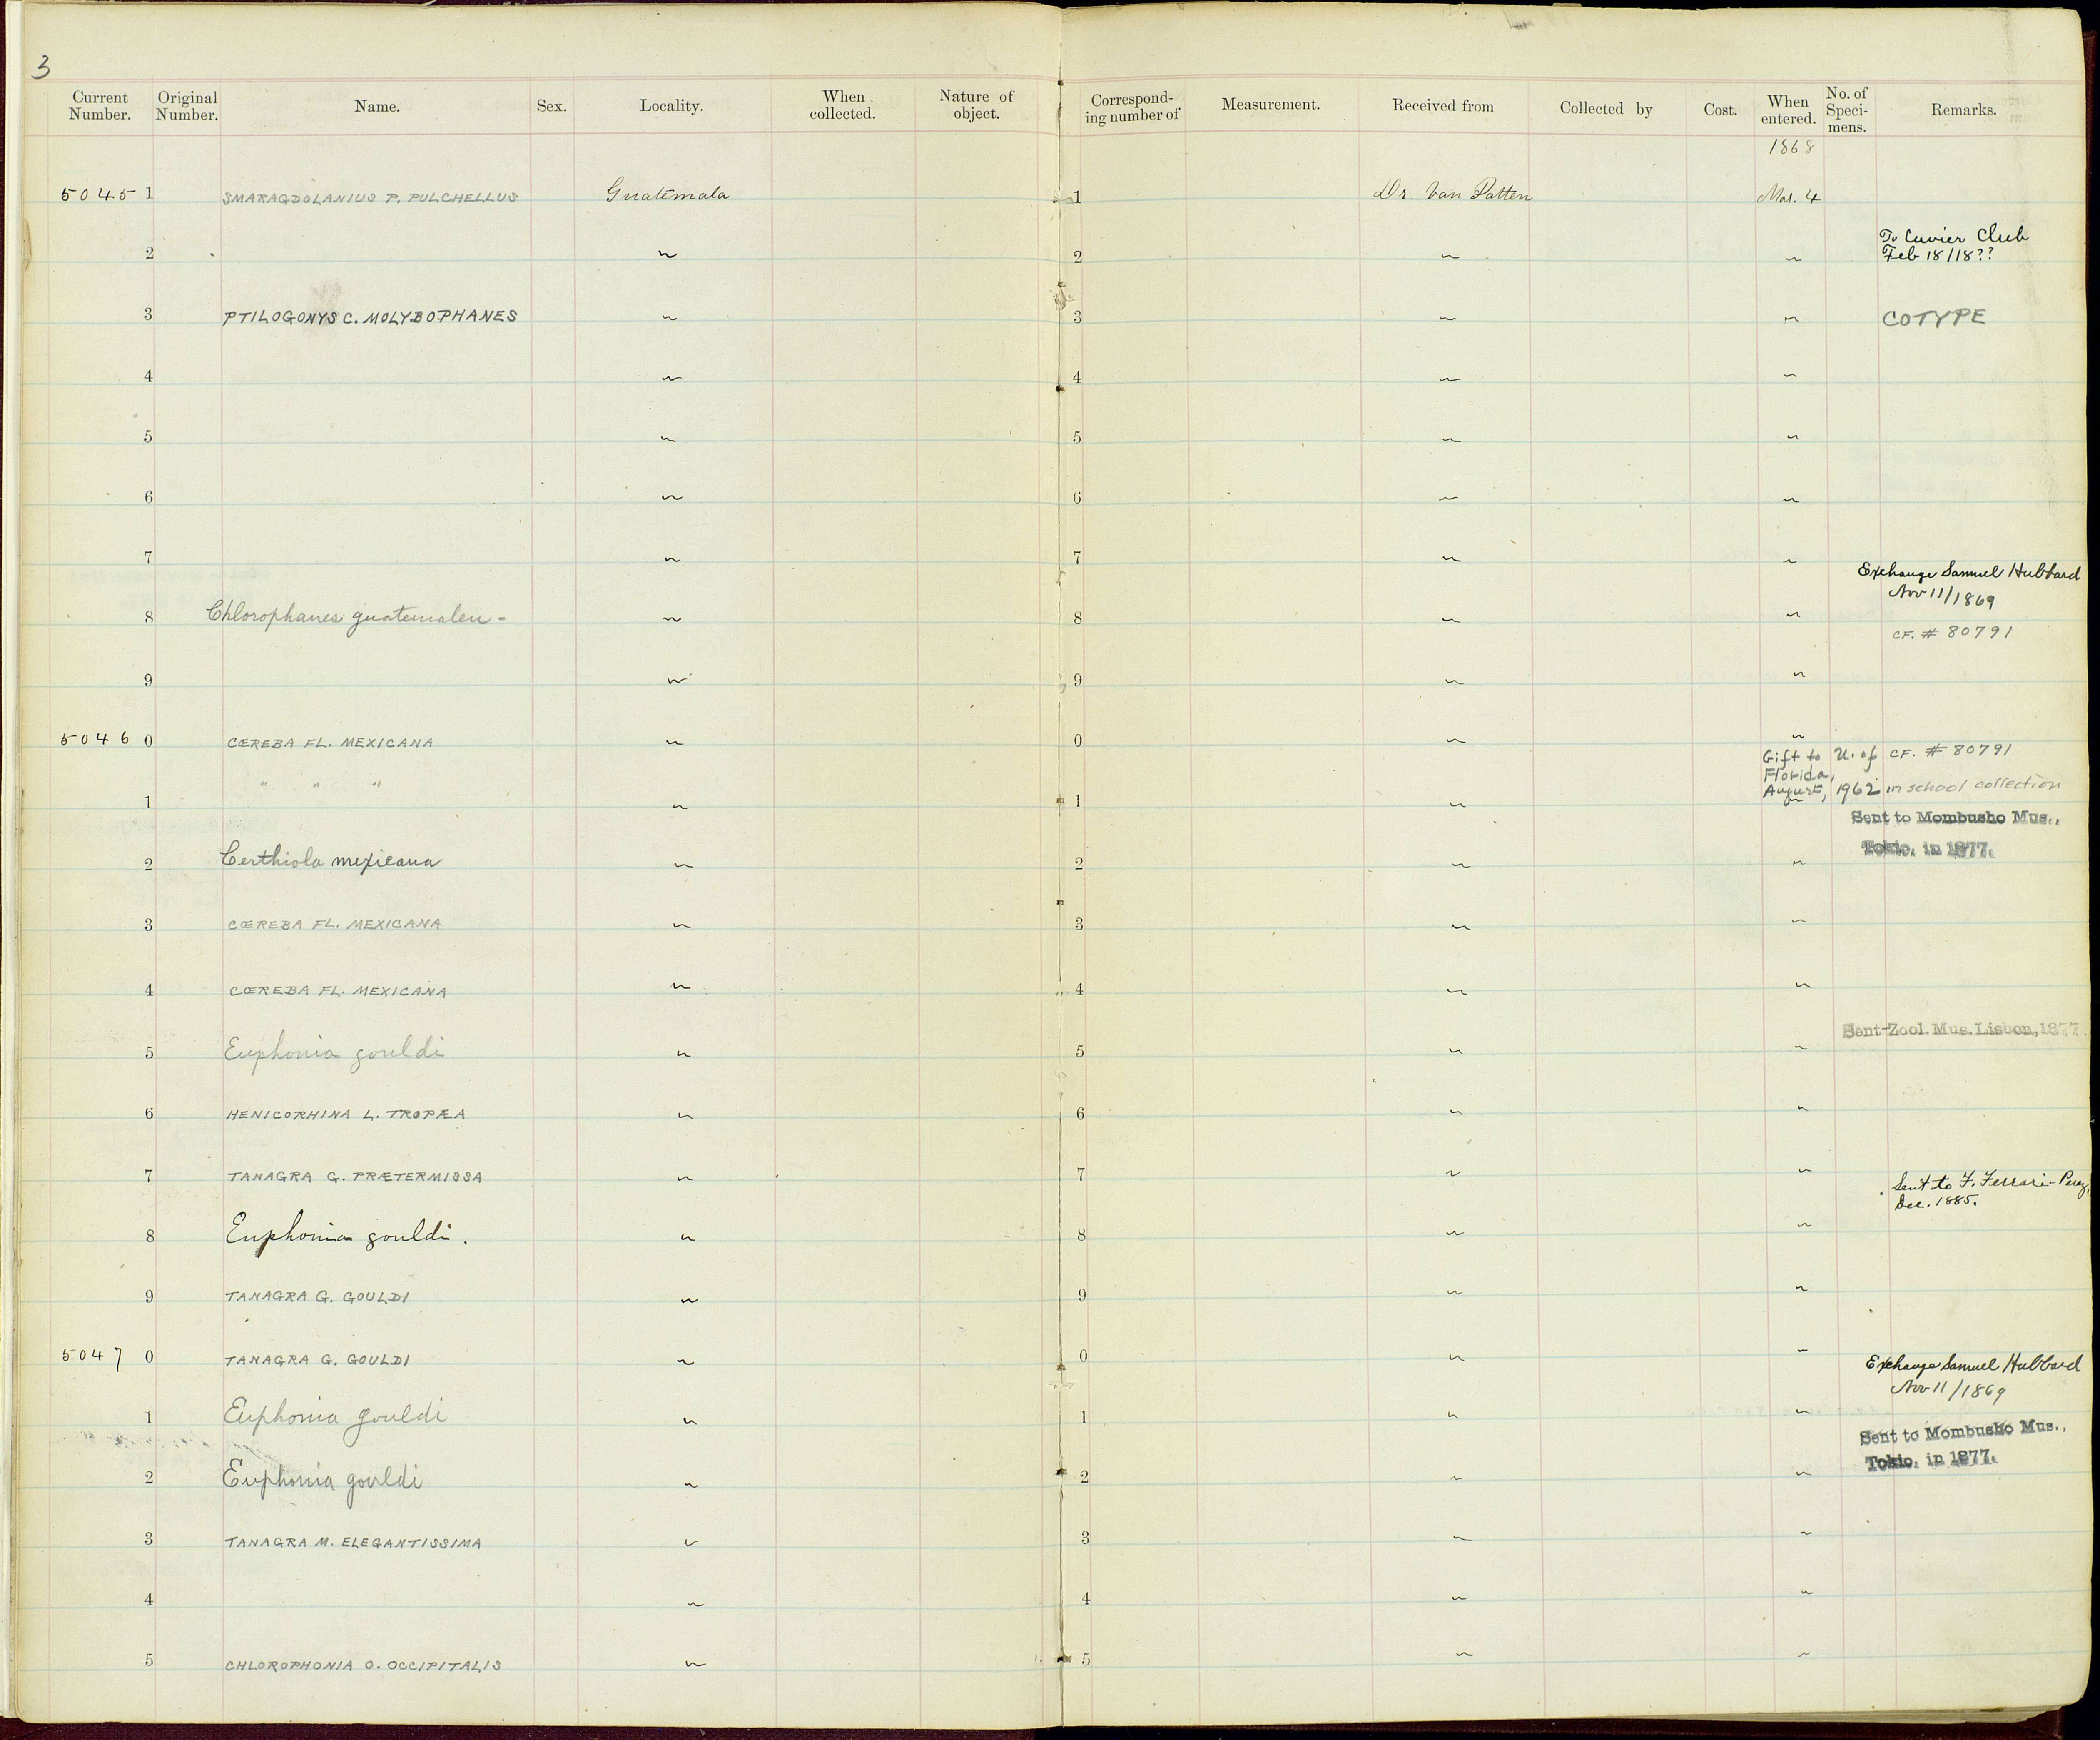 3
Current Number. Original Number. Name. Sex. Locality. When collected. Nature of object. Correspond-ing number of Measurement. Received from Collected by Cost. When entered. No. of Speci-mens. Remarks.
1868
5045 1 SMARAGDOLANIUS P. PULCHELLUS Guatemala 1 Dr. Van Patten Mar. 4
2 " 2 " " To Cuvier Club
Feb 18/18??
3 PTILOGONYS C. MOLYBOPHANES " 3 " " COTYPE
4 " 4 " "
5 " 5 " "
6 " 6 " "
7 " 7 " "
Exchange Samuel Hubbard
Nov 11/1869
8 Chlorophanes guatemalen- " 8 " "
CF. # 80791
9 " 9 " "
5046 0 CŒREBA FL. MEXICANA " 0 " " CF. # 80791
Gift to U. of
Florida,
August, 1962 in school collection
1 " " " " 1 " "
Sent to Mombusho Mus.,
Tokio, in 1877.
2 Certhiola mexicana " 2 " "
3 CŒREBA FL. MEXICANA " 3 " "
4 CŒREBA FL. MEXICANA " 4 " "
Sent-Zool. Mus. Lisbon, 1877
5 Euphonia gouldi " 5 " "
6 HENICORHINA L. TROPÆA " 6 " "
7 TANAGRA G. PRÆTERMISSA " 7 " "
Sent to F. Ferrari-Perez,
Dec. 1885.
8 Euphonia gouldi. " 8 " "
9 TANAGRA G. GOULDI " 9 " "
5047 0 TANAGRA G. GOULDI " 0 " "
Exchange Samuel Hubbard
Nov 11/1869
1 Euphonia gouldi " 1 " "
Sent to Mombusho Mus.,
Tokio, in 1877.
2 Euphonia gouldi " 2 " "
3 TANAGRA M. ELEGANTISSIMA " 3 " "
4 " 4 " "
5 CHLOROPHONIA O. OCCIPITALIS " 5 " "